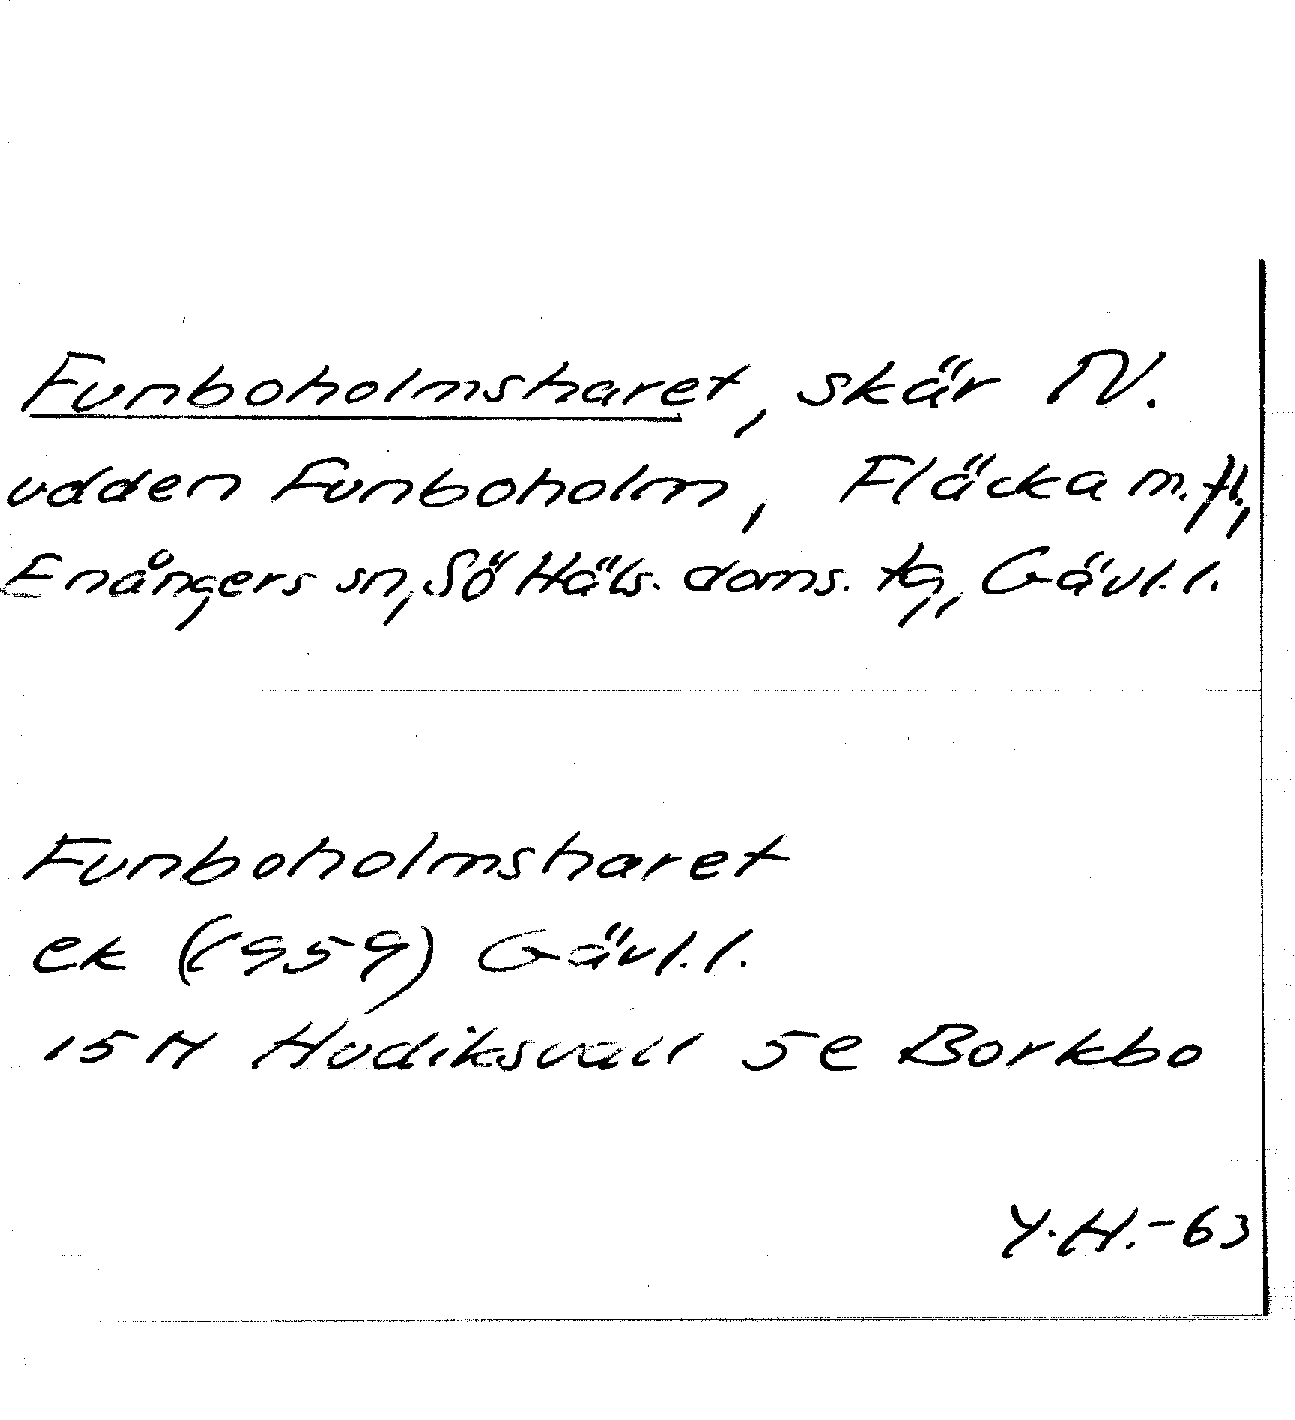 Funboholmsharet, skär N.
udden Funboholm, Fläcka m.fl.,
Enångers sn, Sö Häls. doms. tg, Gävl.l.
Funboholmsharet
ek (1959) Gävl.l.
15H Hudiksvall 5e Borkbo
Y.H.-63